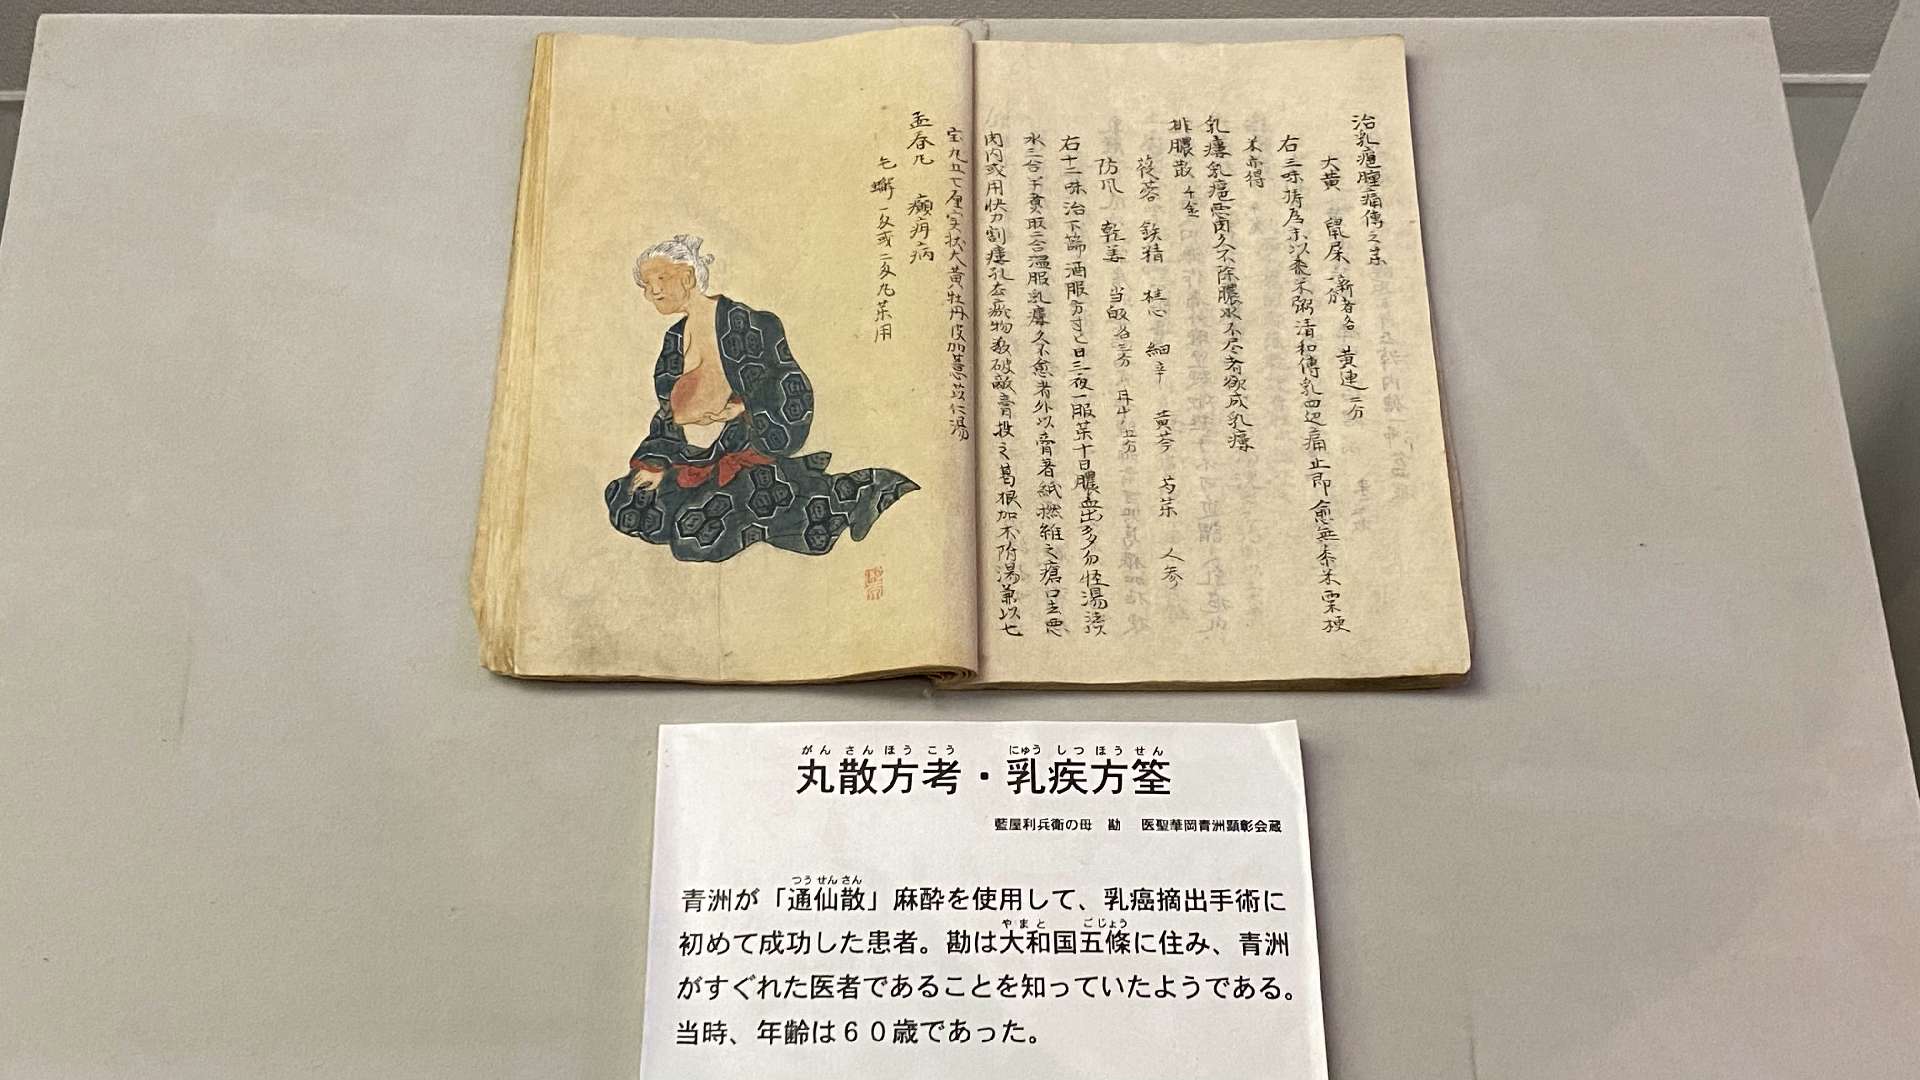 治乳疽腫痛傳之茶
大黄 鼠屎 新者各一分 黄連二分
右三味擣為末以黍米粥清和傳乳四边痛止即愈無黍米粟粳
米亦得
乳癰乳疽悪肉久不除膿水不尽者欲成乳癖
排膿散 千金
蓯蓉 鉄精 桂心 細辛 黄芩 芍茱 人参
防风 乾姜 当皈各三分
右十二味治下篩酒服方寸匕日三夜一服茱十日膿血出多勿怪湯法以
水二合 煮取二合温服乳癖久不愈者外以膏著紙撚 之瘡口去悪
肉内或用快刀割 乳去 物 破敵膏投之葛根加朮附湯兼以七
宝丸五七厘实状大黄牡丹皮加薏苡仁湯
孟春凡 癲病
一 或二 丸茱用
がんさんほうこう にゅうしつほうせん
丸散方考・乳疾方筌
藍屋利兵衛の母 勘 医聖華岡青洲顕彰会蔵
つうせんさん
青洲が「通仙散」麻酔を使用して、乳癌摘出手術に
やまと ごじょう
初めて成功した患者。勘は大和国五條に住み、青洲
がすぐれた医者であることを知っていたようである。
当時、年齢は６０歳であった。